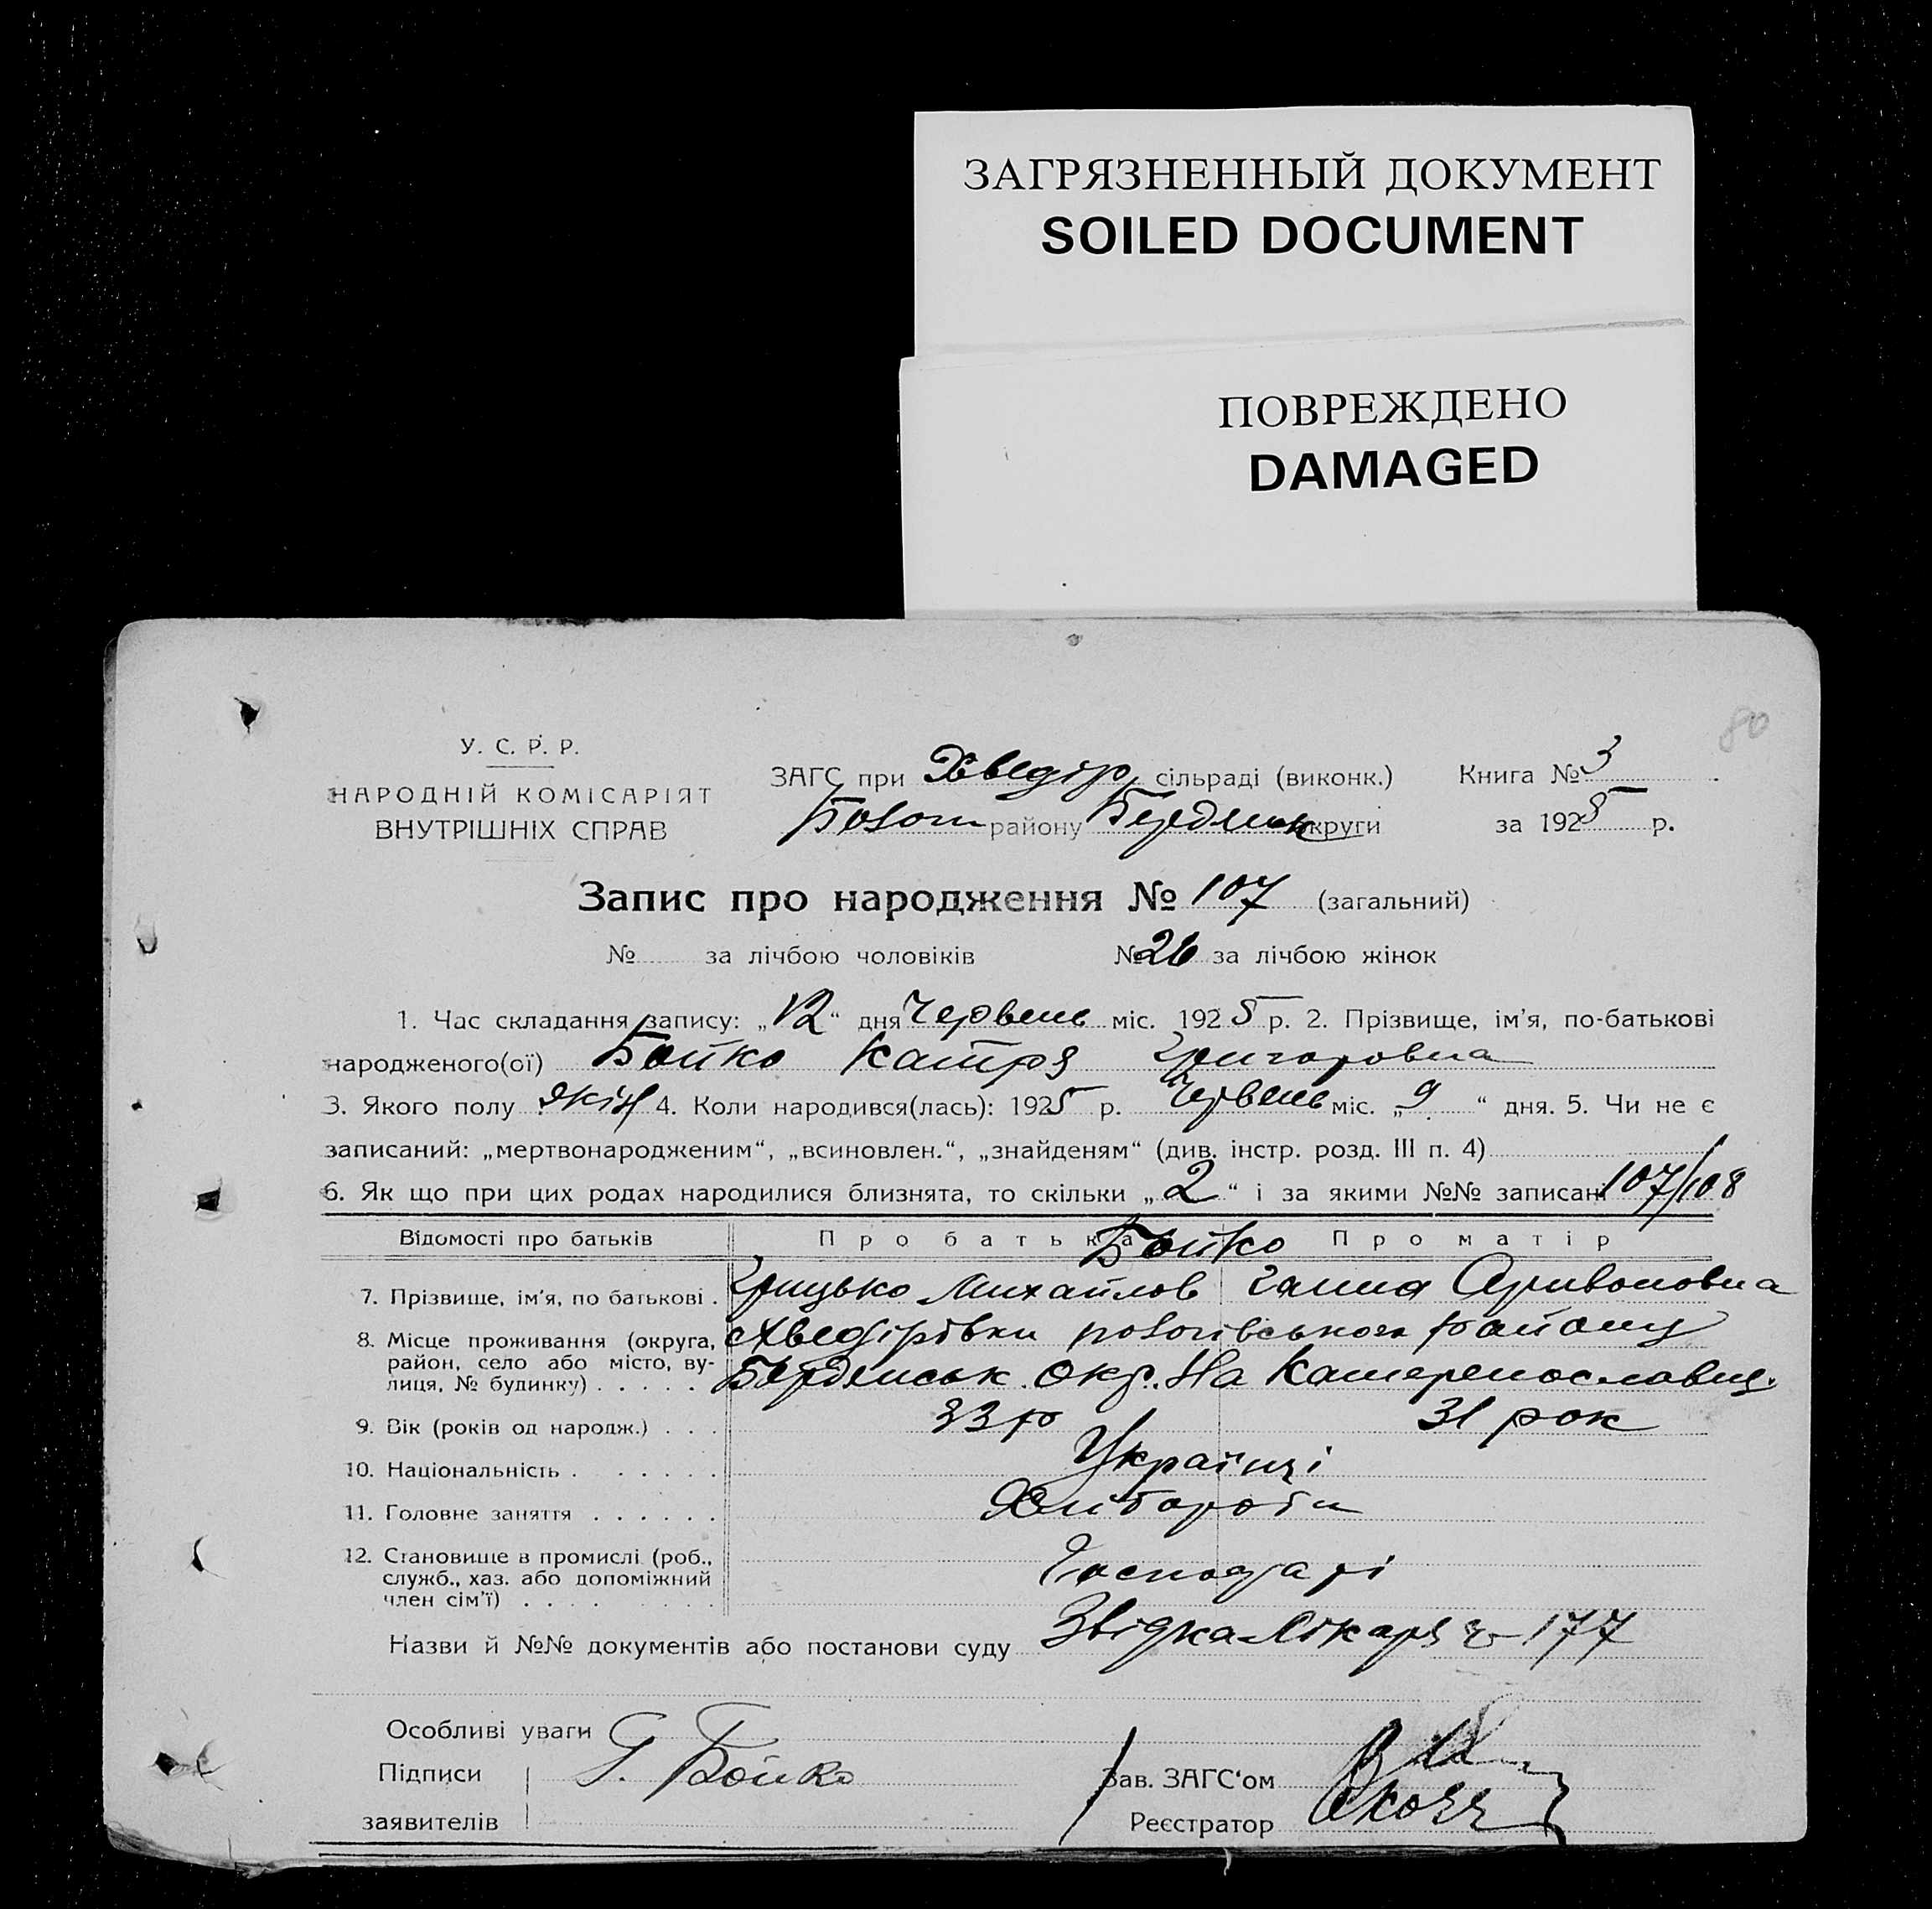 ЗАГРЯЗНЕННЫЙ ДОКУМЕНТ
SOILED DOCUMENT
ПОВРЕЖДЕНО
DAMAGED
80
У. С. Р. Р.
НАРОДНІЙ КОМІСАРІЯТ
ВНУТРІШНІХ СПРАВ
ЗАГС при Хведір. сільраді (виконк.) Книга № 3
району Бердянськ округи за 1925 р.
Запис про народження № 107 (загальний)
№ за лічбою чоловіків № 26 за лічбою жінок
1. Час складання запису: „12“ дня Червень міс. 1925 р. 2. Прізвище, ім'я, по-батькові
народженого(ої) Бойко Катря Григоровна
3. Якого полу жін 4. Коли народився(лась): 1925 р. Червень міс. „9“ дня. 5. Чи не є
записаний: „мертвонародженим“, „всиновлен.“, „знайденям“ (див. інстр. розд. III п. 4)
6. Як що при цих родах народилися близнята, то скільки „2“ і за якими №№ записані 107/108
Відомості про батьків Про батька Бойко Про матір
7. Прізвище, ім'я, по батькові . Грицько Михайлов Ганна
8. Місце проживання (округа, район, село або місто, вулиця, № будинку) . . . . . Хведірівки району
Бердянськ. окр. На Катеренославщ.
9. Вік (років од народж.) . . . 33 р 31 рок
10. Національність . . . . . . Українці
11. Головне заняття . . . . . . Хлібороби
12. Становище в промислі (роб., служб., хаз. або допоміжний член сім'ї) . . . . Господарі
Назви й №№ документів або постанови суду Звідка Лікаря 177
Особливі уваги
Підписи заявителів Г. Бойко
Зав. ЗАГС'ом
Реєстратор